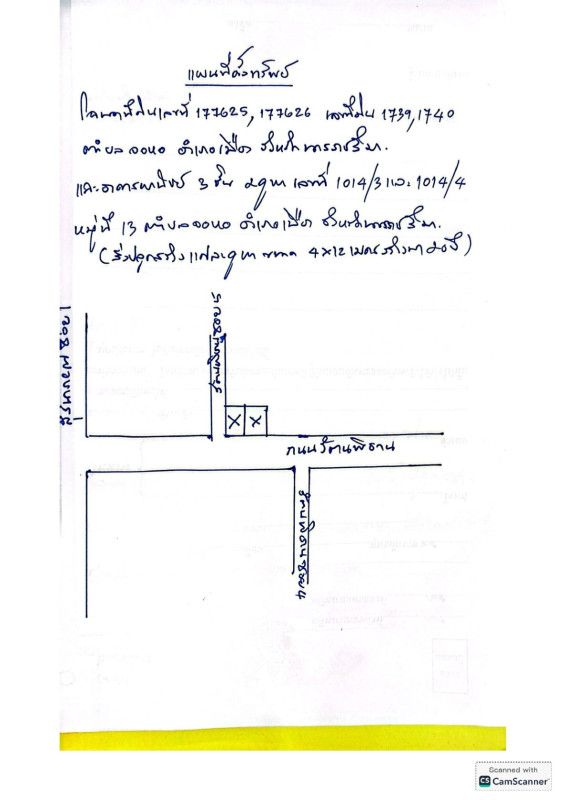 แผนที่ตั้งทรัพย์
โฉนดที่ดินเลขที่ 177625, 177626 เลขที่ดิน 1739, 1740
ตำบล จอหอ อำเภอเมือง จังหวัดนครราชสีมา.
และอาคารพาณิชย์ 3 ชั้น 2 คูหา เลขที่ 1014/3 และ 1014/4
หมู่ที่ 13 ตำบลจอหอ อำเภอเมือง จังหวัดนครราชสีมา.
(สิ่งปลูกสร้าง แต่ละคูหา ขนาด 4x12 เมตร สร้างมา 20ปี)
ซอย 5
X X
ถนนวัตนพิธาน
Scanned with
CS CamScanner